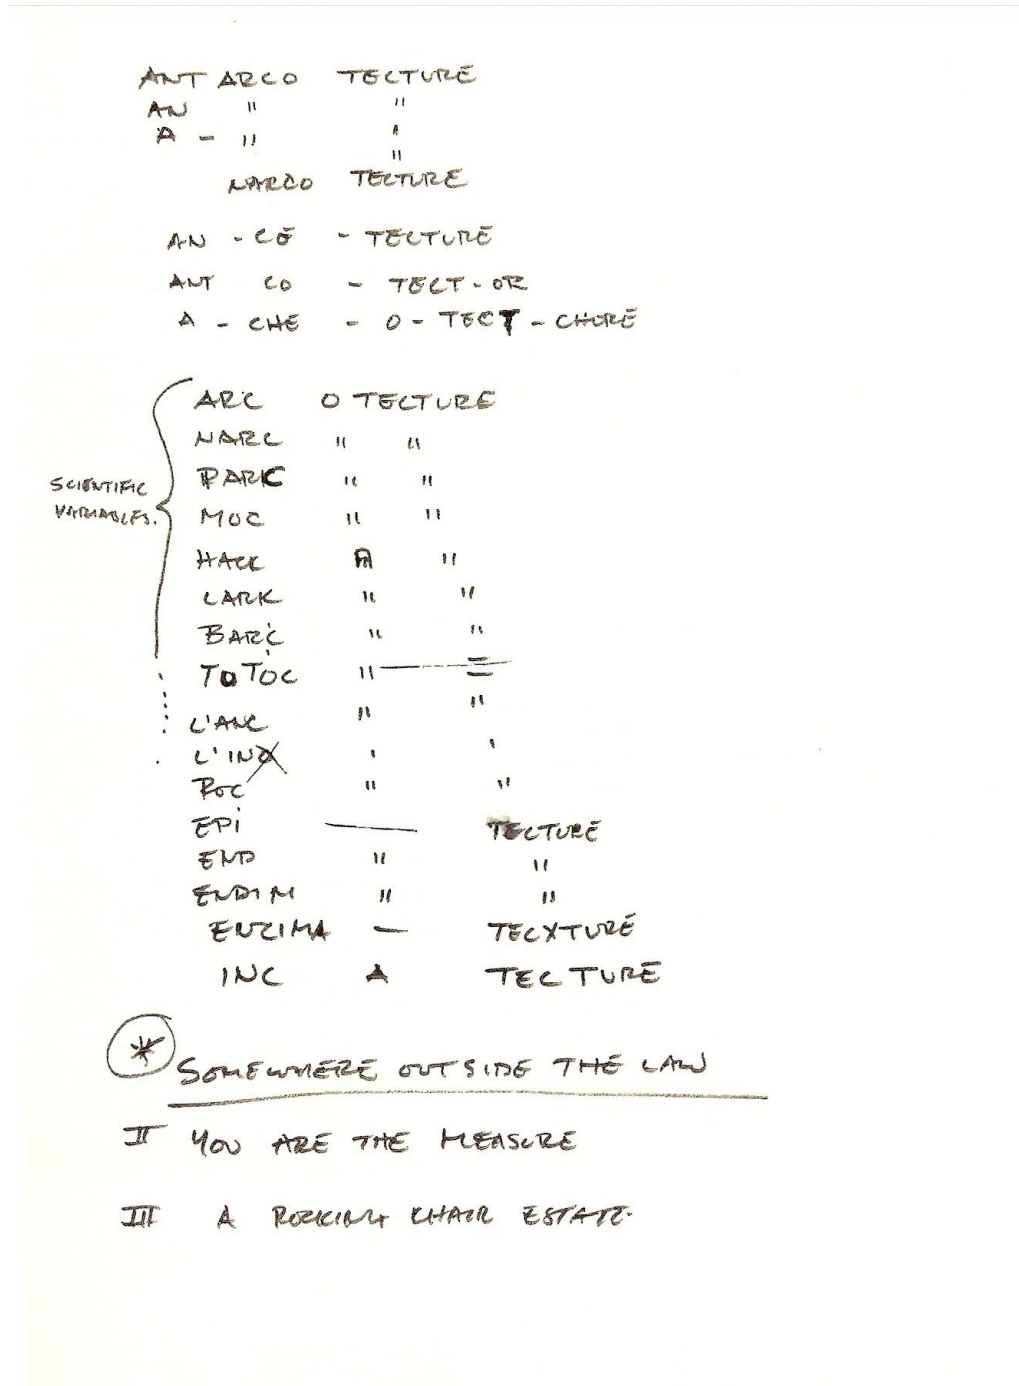 ANT ARCO TECTURE
AN " "
A - " "
"
NARCO TECTURE
AN - CE - TECTURE
ANT CO - TECT - OR
A - CHE - O - TECT - CHURE
ARC O TECTURE
NARC " "
PARK " "
SCIENTIFIC
VARIABLES.
MOC " "
HACK A "
LARK " "
BARC " "
TOTOC " — =
L'ANC " "
L'INO ' '
" "
EPI — TECTURE
END " "
ENDIM " "
ENZIMA — TECXTURE
INC A TECTURE
* SOMEWHERE OUTSIDE THE LAW
II YOU ARE THE MEASURE
III A ROCKING CHAIR ESTATE.